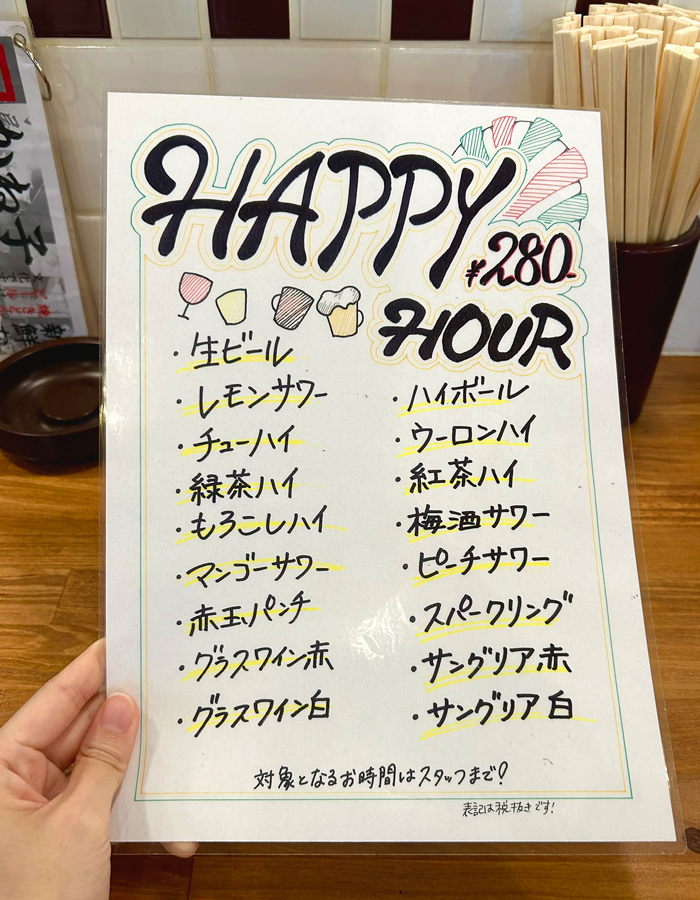 HAPPY
¥280-
HOUR
・生ビール
・レモンサワー
・チューハイ
・緑茶ハイ
・もろこしハイ
・マンゴーサワー
・赤玉パンチ
・グラスワイン赤
・グラスワイン白
・ハイボール
・ウーロンハイ
・紅茶ハイ
・梅酒サワー
・ピーチサワー
・スパークリング
・サングリア赤
・サングリア白
対象となるお時間はスタッフまで!
表記は税抜きです!